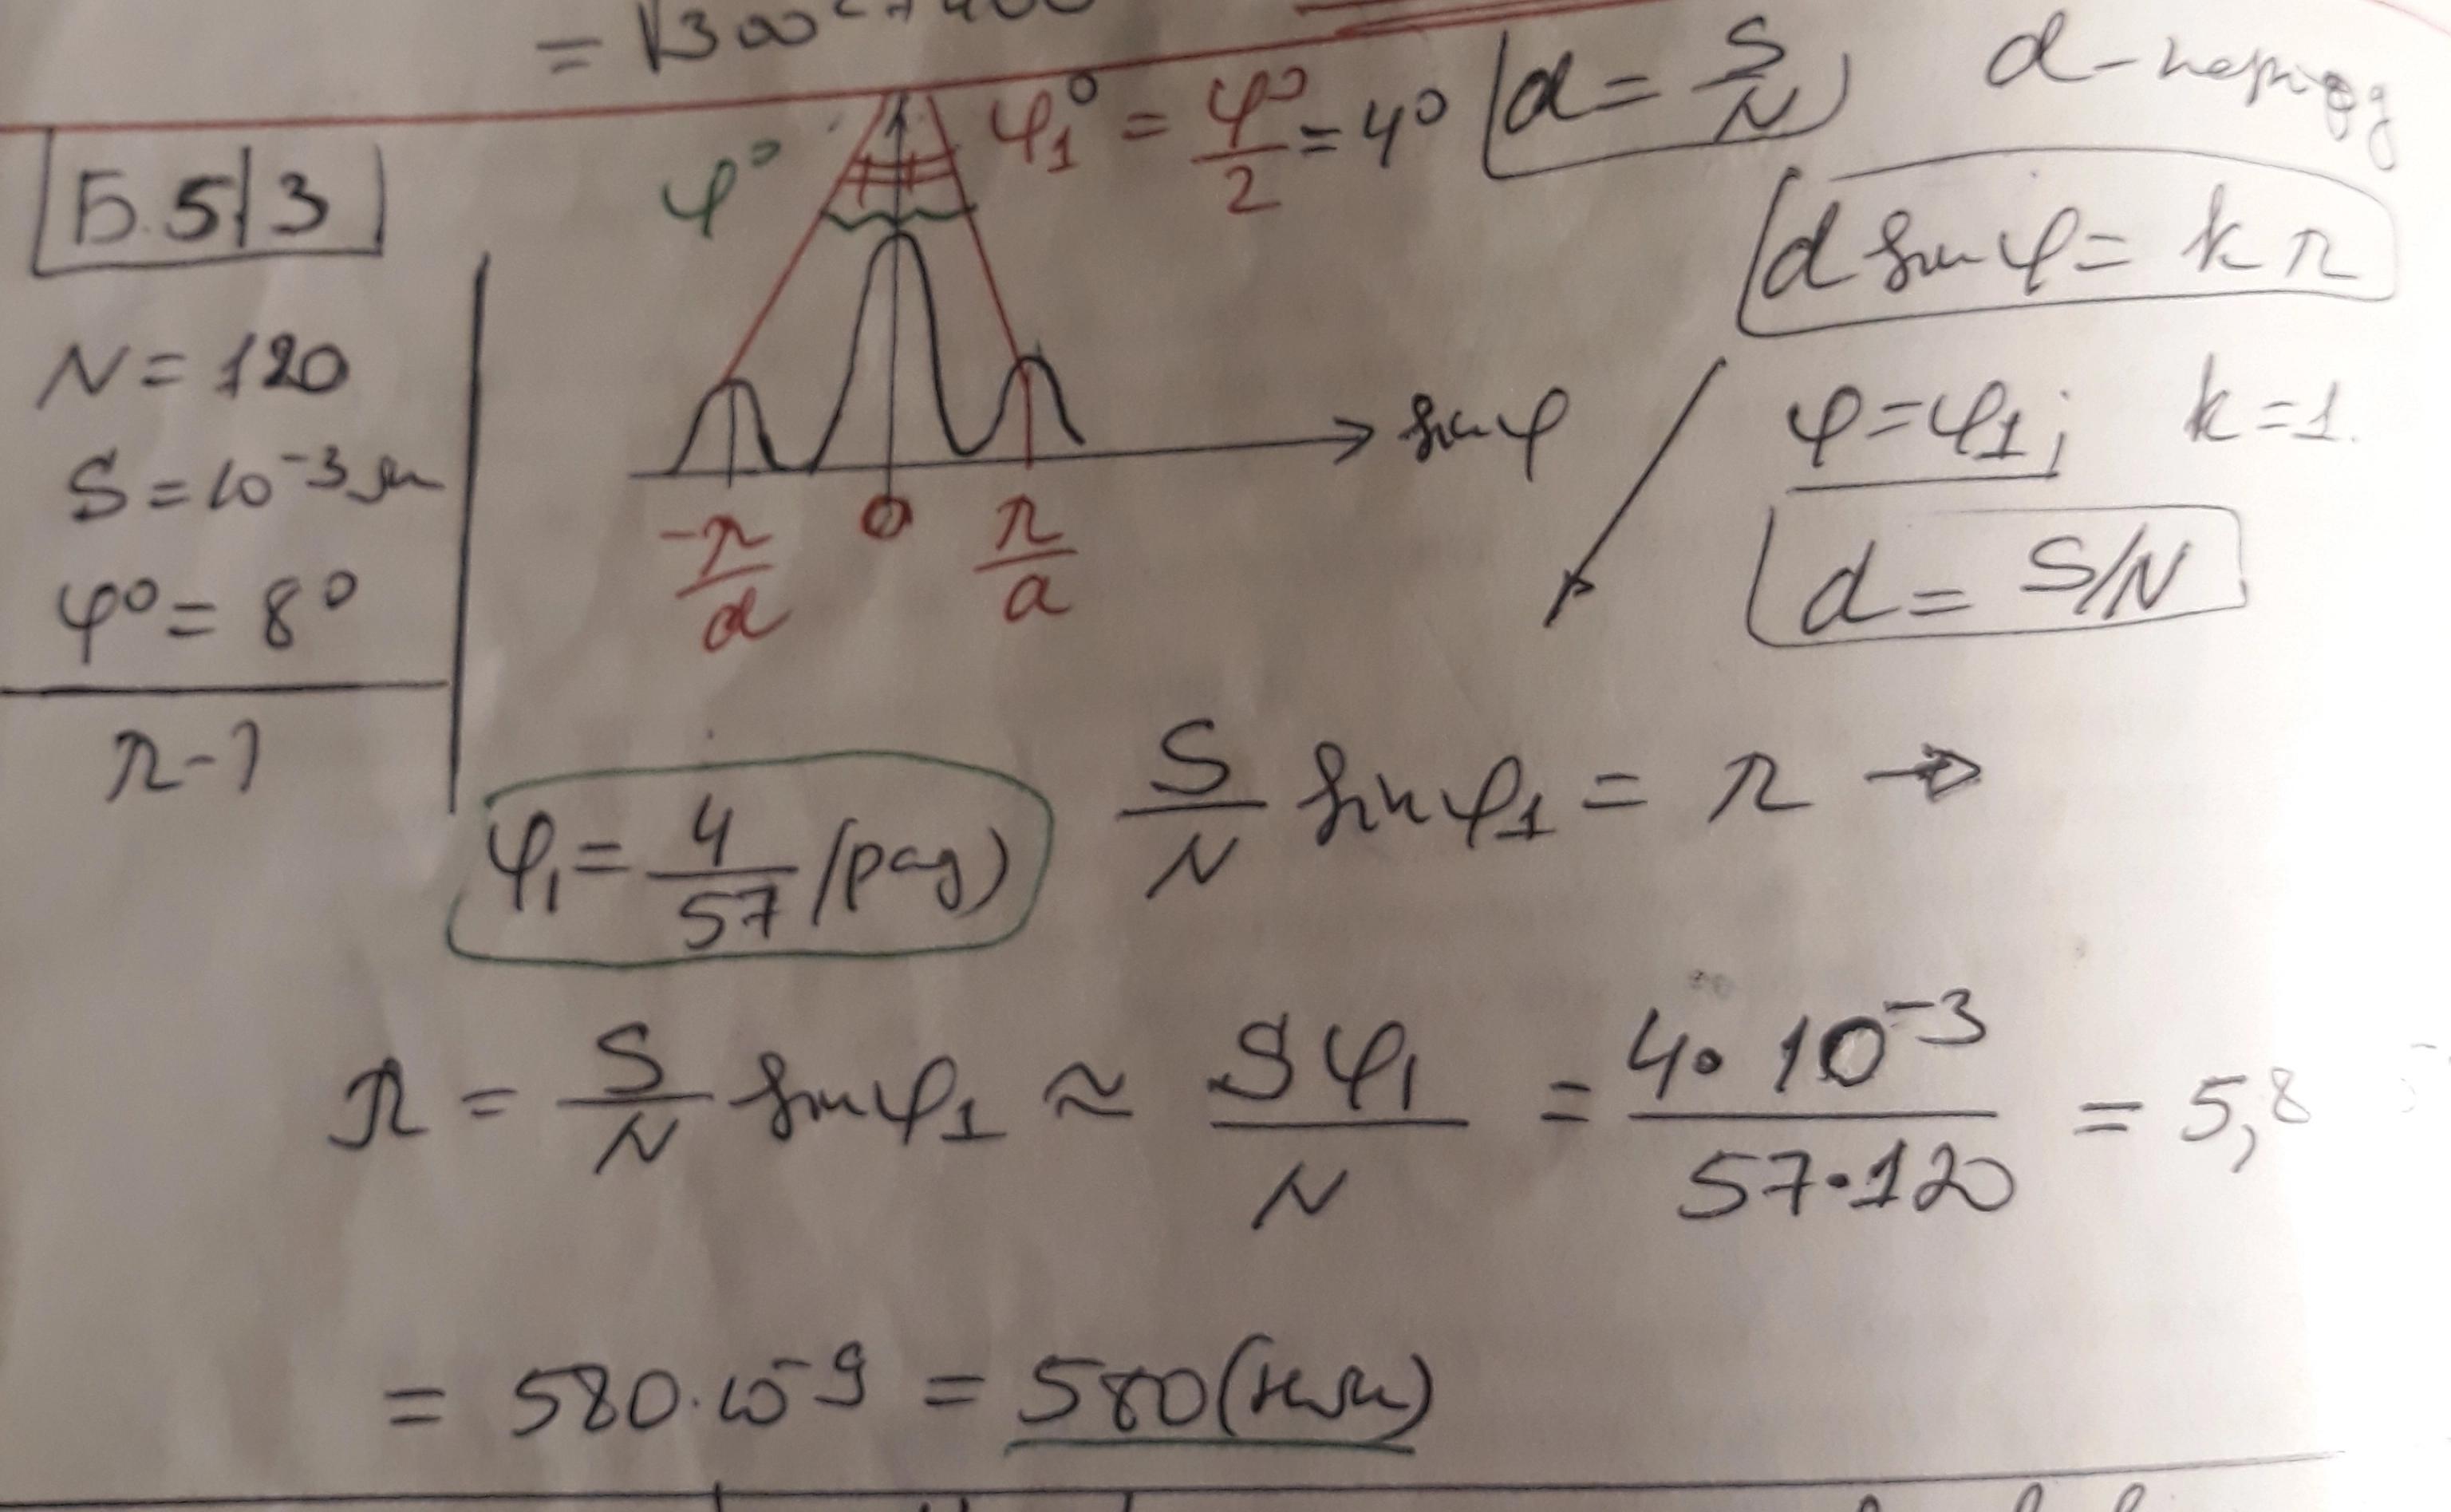 = √300² + 400
Б.5|3
N = 120
S = 10⁻³ м
φ° = 8°
λ - ?
φ°
φ₁° = φ°/2 = 4°
d = S/N
d - период
d sin φ = k λ
φ = φ₁; k = 1.
d = S/N
sin φ
-λ/d 0 λ/d
φ₁ = 4/57 (рад)
S/N sin φ₁ = λ →
λ = S/N sin φ₁ ≈ Sφ₁/N = 4 · 10⁻³/57 · 120 = 5,8
= 580 · 10⁻⁹ = 580 (нм)